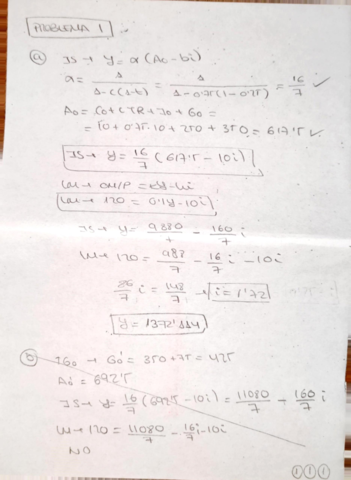 PROBLEMA 1
a) IS → Y = α(A0 - bi)
α = 1 / 1-c(1-t) = 1 / 1-0'75(1-0'25) = 16/7 ✓
A0 = C0 + cTR + I0 + G0 =
= 50 + 0'75·10 + 250 + 350 = 617'5 ✓
IS → Y = 16/7 (617'5 - 10i)
LM → OM/P = kY - hi
LM → 120 = 0'1Y - 10i
IS → Y = 9880/7 - 160/7 i
LM → 120 = 988/7 - 16/7 i - 10i
86/7 i = 148/7 → i = 1'72
Y = 1372'114
b) G0 → G0' = 350 + 75 = 425
A0' = 692'5
IS → Y = 16/7 (692'5 - 10i) = 11080/7 - 160/7 i
LM → 120 = 11080/7 - 16/7 i - 10i
NO